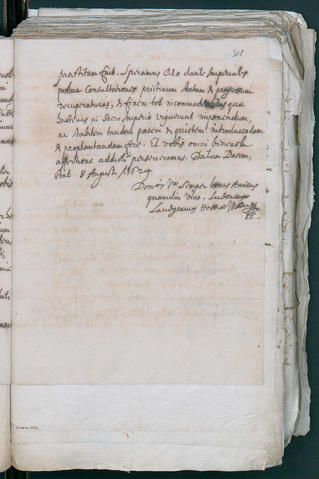 312
praestitum fuit. Speramus Deo dante Imperiales
postea Consultationes pristinum statum & progressum
recuperaturas, & finem tot incommoditatibus quae
hactenus in Sacro Imperio viguerunt imponendum,
ac stabilem tandem pacem & quietem introducendam
& proplantandam fore. Et vobis omni benevola
affectione addicti perseveramus. Datum Darm
stat 8 August
Semper bonus Amicus
quamdiu vivo. Ludovicus
Landgravius Hessiae